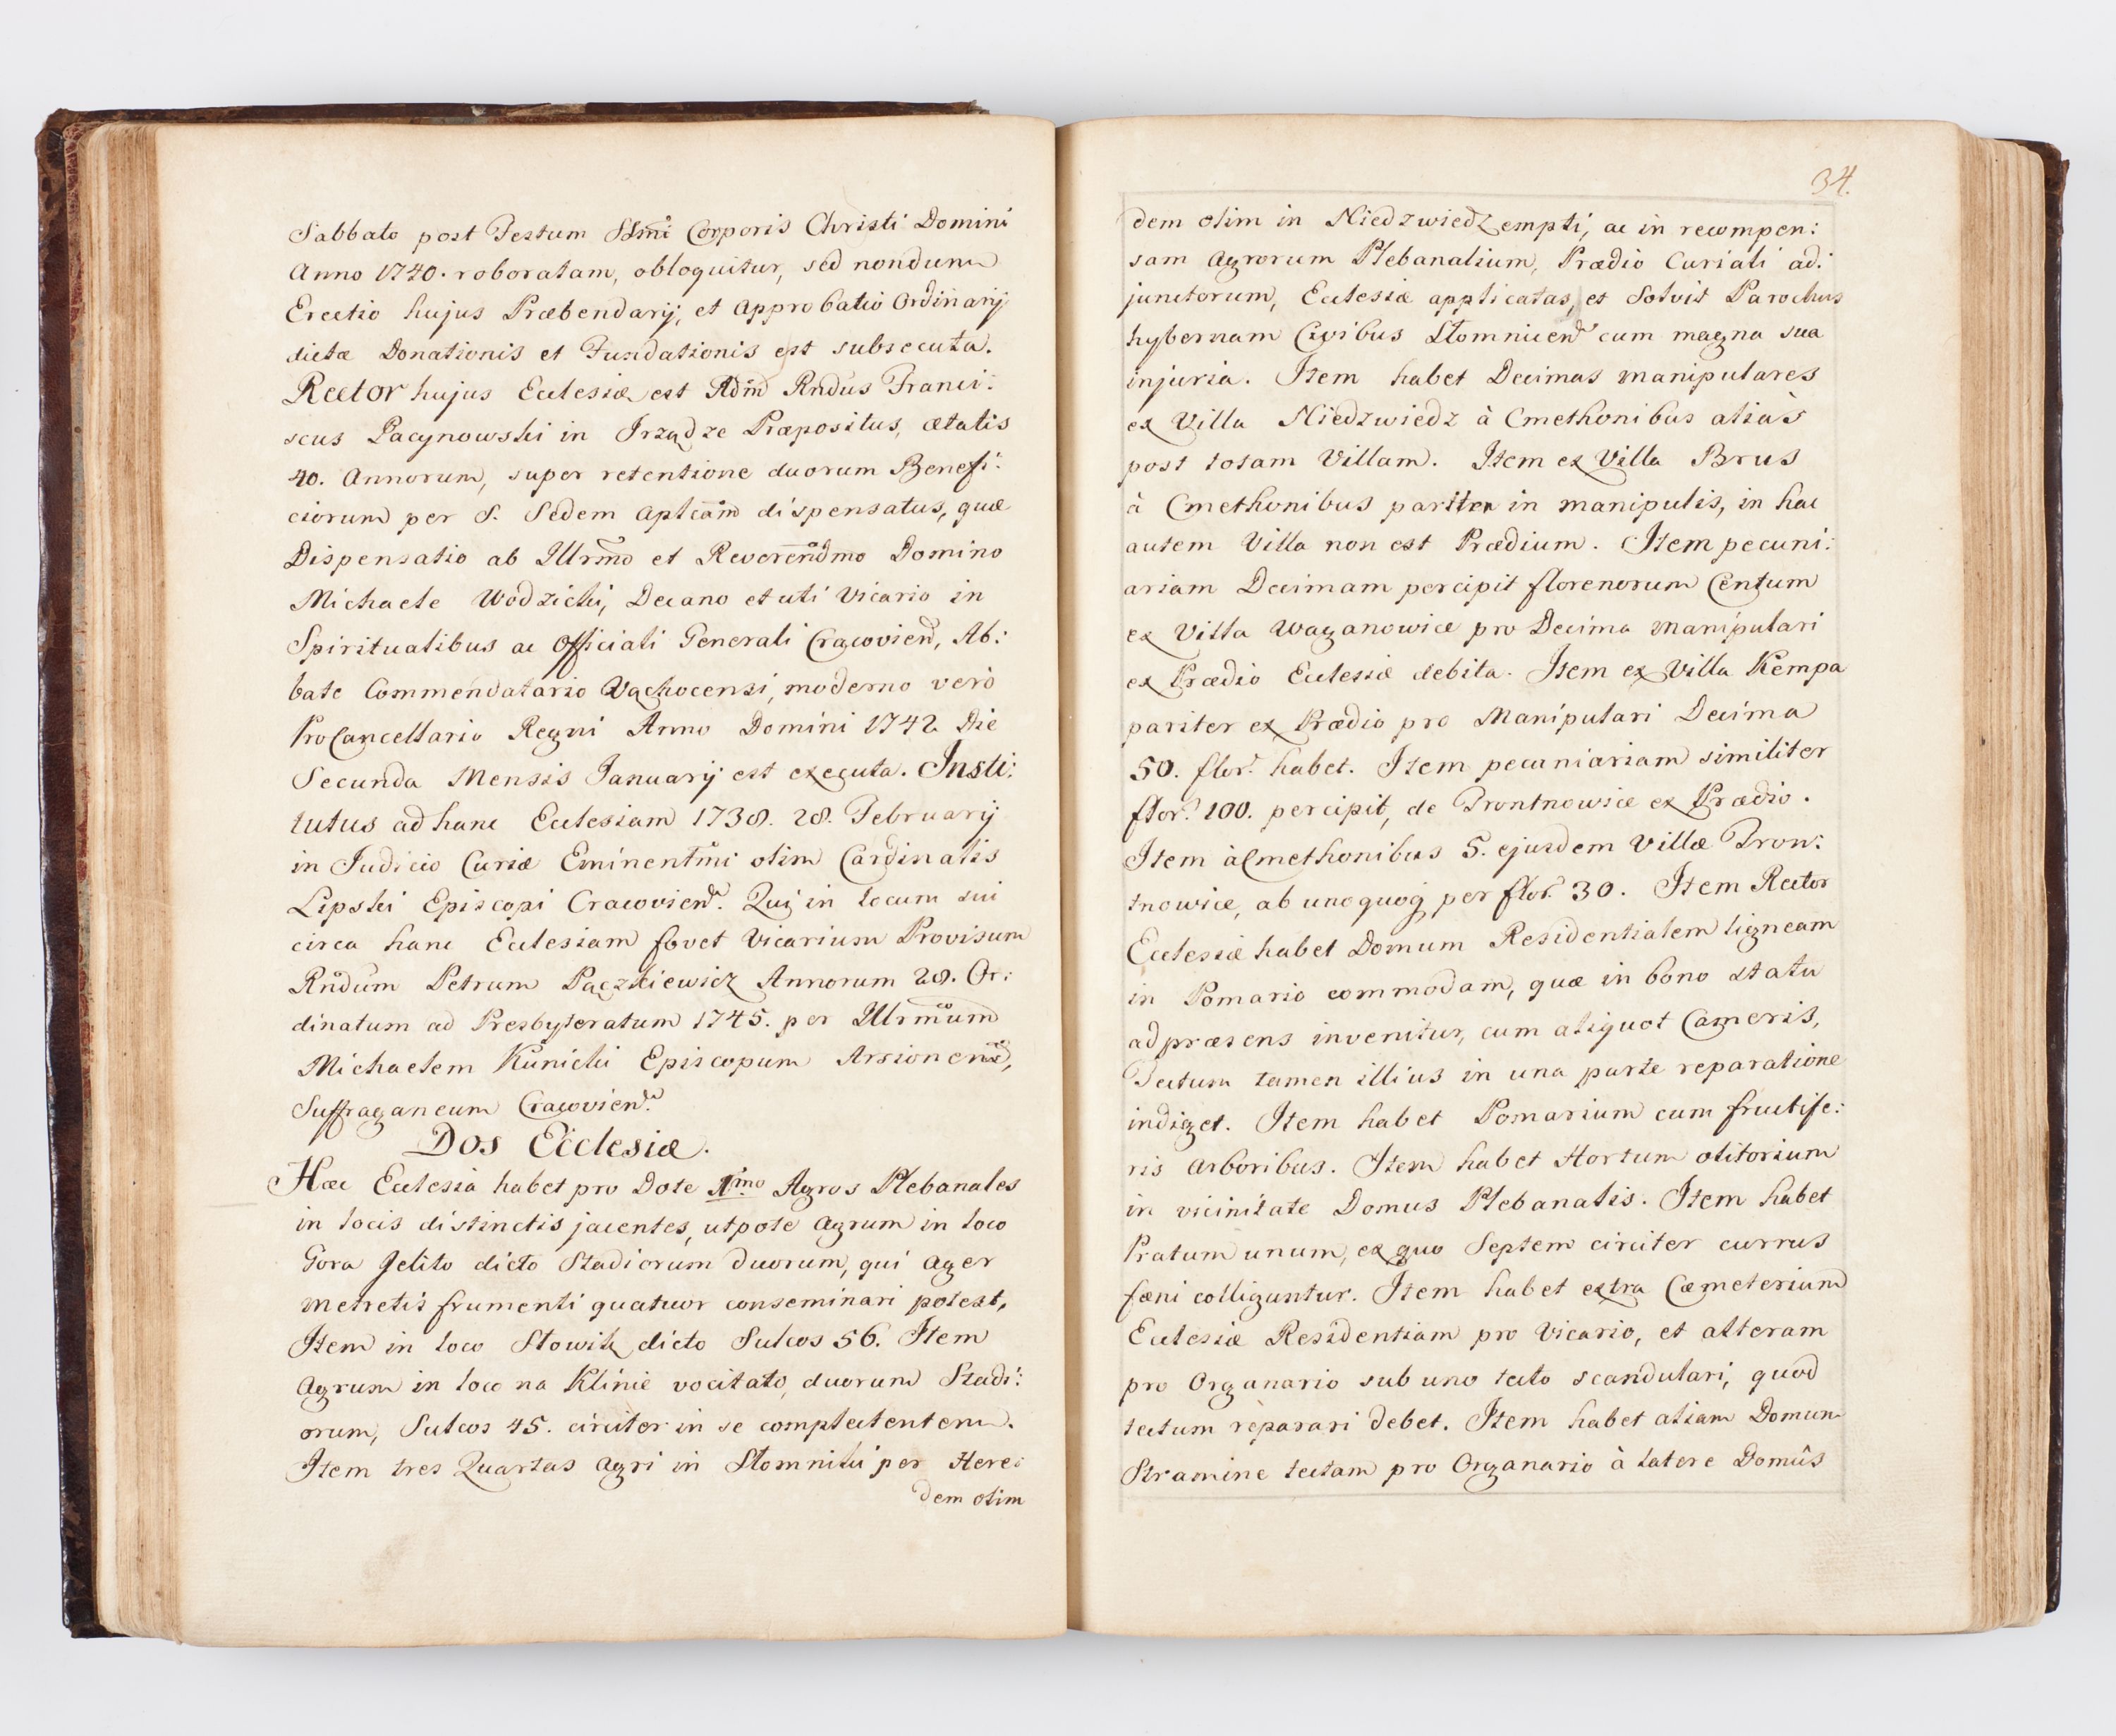 Sabbato post Festum SSmi Corporis Christi Domini
Anno 1740. roboratam, obloquitur, sed nondum
Erectio hujus Præbendarij, et Approbatio Ordinarij
dictæ Donationis et Fundationis est subsecuta.
Rector hujus Ecclesiæ est Adm̄ Rndus Franci:
scus Pacynowski in Irządze Præpositus, ætatis
40. Annorum, super retentione duorum Benefi:
ciorum per S. Sedem Aplcam̄ dispensatus, quæ
Dispensatio ab Illrm̄o et Reverendmo Domino
Michaele Wodzicki, Decano et uti Vicario in
Spiritualibus ac Officiali Generali Cracovien̄, Ab:
bate Commendatario Vąchocensi, moderno verò
ProCancellario Regni Anno Domini 1742 Die
Secunda Mensis Januarij est executa. Insti:
tutus ad hanc Ecclesiam 1738. 28. Februarij
in Judicio Curiæ Eminentmi olim Cardinalis
Lipski Episcopi Cracovien. Qui in locum sui
circa hanc Ecclesiam fovet Vicarium Provisum
Rndum Petrum Pączkiewicz Annorum 28. Or:
dinatum ad Presbyteratum 1745. per Illrmum
Michaelem Kunicki Episcopum Arsionens̄,
Suffraganeum Cracovien.
Dos Ecclesiæ.
Hæc Ecclesia habet pro Dote 1mo Agros Plebanales
in locis distinctis jacentes, utpote Agrum in loco
Gora Jelito dicto Stadiorum duorum, qui Ager
metretis frumenti quatuor conseminari potest,
Item in loco Stowik dicto Sulcos 56. Item
Agrum in loco na Klinie vocitato, duorum Stadi:
orum, Sulcos 45. circiter in se complectentem.
Item tres Quartas Agri in Słomniki per Here:
dem olim
34.
dem olim in Niedzwiedz empti, ac in recompen:
sam Agrorum Plebanalium, Prædio Curiali ad:
junctorum, Ecclesiæ applicatas, et Solvit Parochus
hybernam Civibus Słomnicen cum magna sua
injuria. Item habet Decimas manipulares
ex Villa Niedzwiedz à Cmethonibus aliàs
post totam Villam. Item ex Villa Brus
à Cmethonibus pariter in manipulis, in hac
autem Villa non est Prædium. Item pecuni:
ariam Decimam percipit florenorum Centum
ex Villa Waganowice pro Decima manipulari
ex Prædio Ecclesiæ debita. Item ex Villa Kempa
pariter ex Prædio pro Manipulari Decima
50. flor. habet. Item pecuniariam similiter
flor. 100. percipit, de Prontnowice ex Prædio.
Item à Cmethonibus 5. ejusdem Villæ Pron:
tnowice, ab unoquoq per flor. 30. Item Rector
Ecclesiæ habet Domum Residentialem ligneam
in Pomario commodam, quæ in bono statu
ad præsens invenitur, cum aliquot Cameris,
Tectum tamen illius in una parte reparatione
indiget. Item habet Pomarium cum fructife:
ris Arboribus. Item habet Hortum olitorium
in vicinitate Domus Plebanalis. Item habet
Pratum unum, ex quo Septem circiter currus
fæni colliguntur. Item habet extra Cæmeterium
Ecclesiæ Residentiam pro Vicario, et alteram
pro Organario sub uno tecto scandulari, quod
tectum reparari debet. Item habet aliam Domum
Stramine tectam pro Organario à latere Domûs